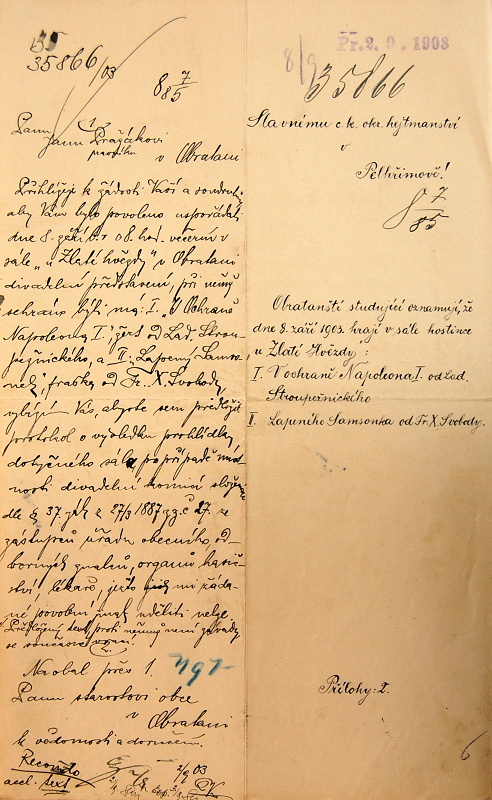 35866/03
8 7/85
Panu
Janu Pražákovi
v Obratani
Přihlížeje k žádosti Vaší a soudruhů,
aby Vám bylo povoleno uspořádati
dne 8. září t. r. o 8 hod. večerní v
sále „u Zlaté hvězdy" v Obratani
divadelní představení, při němž
sehráno býti má: I. „V Ochraně
Napoleona I", žert od Lad. Strou-
pežnického, a II. „Lapený Samso-
nek", fraška od Fr. X. Svobody,
vybízím Vás, abyste sem předložil
protokol o výsledku prohlídky
dotyčného sálu po případě míst-
nosti divadelní komisí složenou
dle § 37. z 27/3 1887 z. z. č. 27. ze
zástupců úřadu obecního, od-
borných znalců, orgánů hasič-
ství, lékaře, ježto jinak mi žáda-
né povolení uděliti nelze.
Předložený text, proti němuž není závady,
se současně vrací.
Na obal přes 1.
Panu starostovi obce
v Obratani
k vědomosti a doručení.
2/9 03
text
Pr. 2. 9. 1903
8/9
35866
Slavnému c. k. okr. hejtmanství
v
Pelhřimově!
8 7/85
Obrataňští studující oznamují, že
dne 8. září 1903. hrají v sále hostince
„u Zlaté Hvězdy":
I. V ochraně Napoleona I. od Lad.
Stroupežnického
II. Lapeného Samsonka od Fr. X. Svobody.
Přílohy: 2.
6